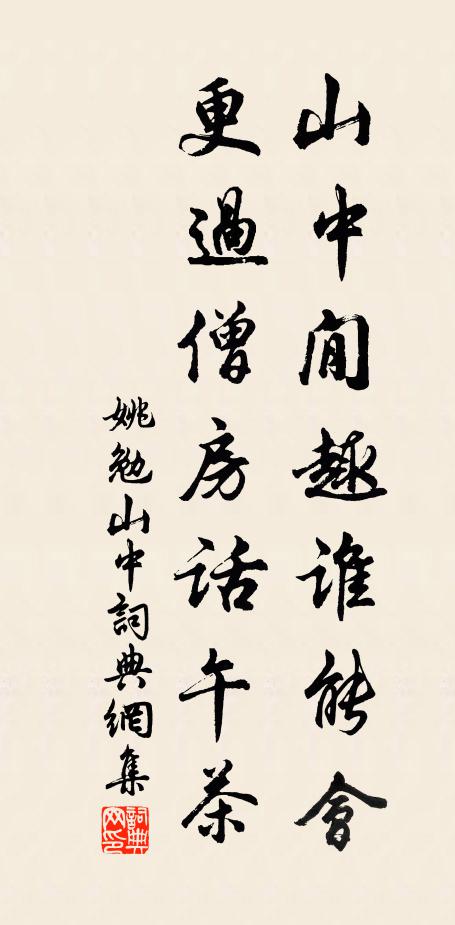 山中閒趣谁能會
更過僧房話午茶
姚勉山中詞典網集
詞典网印